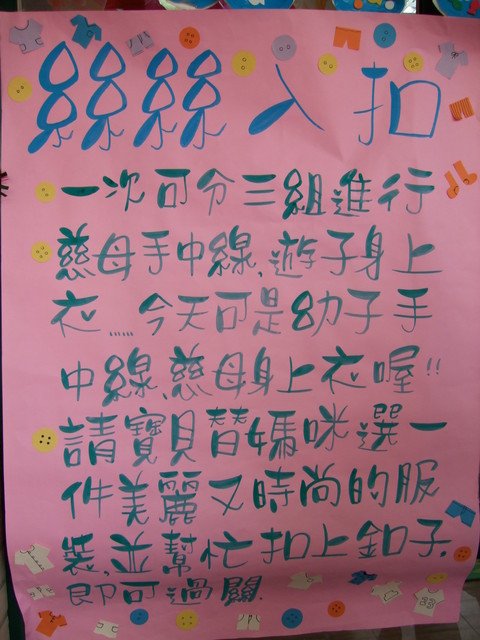 絲絲入扣
一次可分三組進行
慈母手中線,遊子身上
衣......今天可是幼子手
中線,慈母身上衣喔!!
請寶貝替媽咪選一
件美麗又時尚的服
裝,並幫忙扣上釦子,
即可過關.